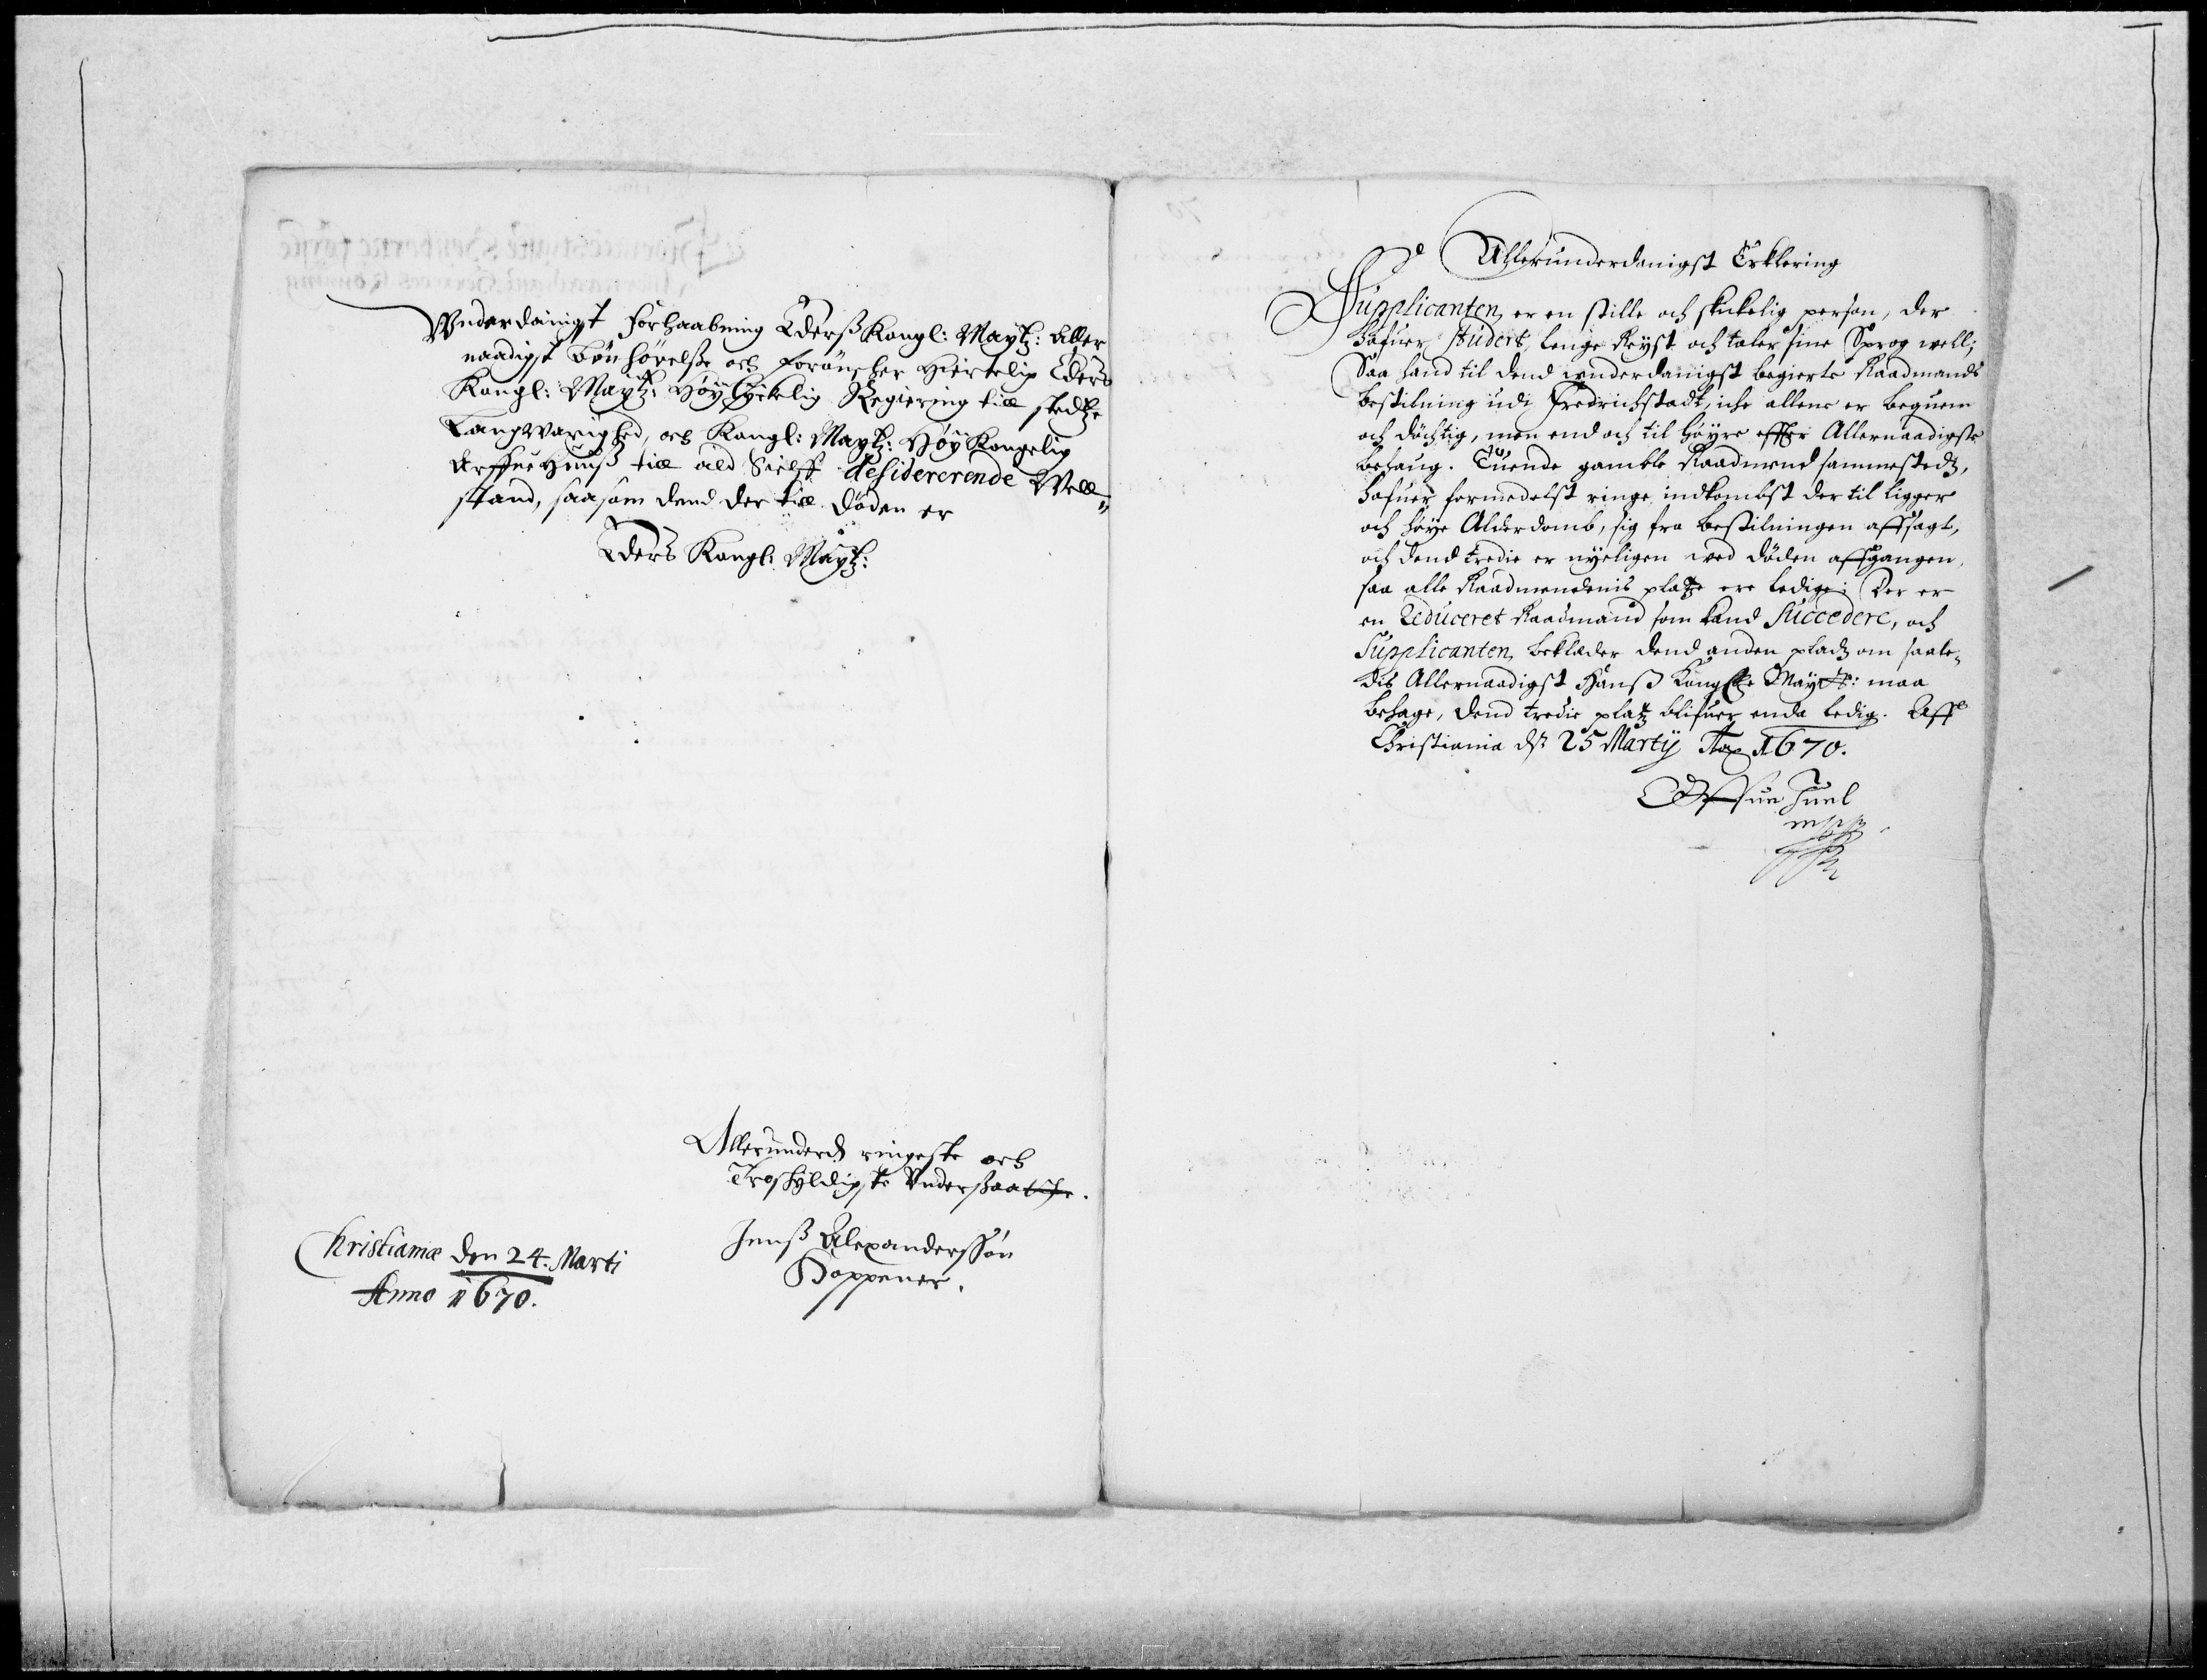 Vnderdainigst Forhaabning Eders Kongl: Maytz: Aller
naadigst bønhørelse och forønscher hiertelig Eders
Kongl: Maytz: Høylyckelig Regiering till stedtze
Langvarighed, och Kongl: Maytz: Høy Kongelig
Arffue Huuss till ald Sielff desidererende Well=
stand, saasom dend der till døden er
Eders Kongl: Maytz:
Allerunderd ringeste och
Troskyldigste Vnderssaatthe.
Jenss Alexandersøn
Hoppener.
Christiania den 24. Marti
Anno 1670.
Allerunderdanigst Erklering
Supplicanten, er en stille och skickelig person, der
hafuer studert, lenge Reyst och taler sine Sprog well;
Saa hand til dend underdanigst begierte Raadmands
bestilning udi Fredrichstadt, iche allene er bequem
och döchtig, men end och til höyre effter Allernaadigste
behaug. Tuende gamble Raadmend sammestedtz,
hafuer formedelst ringe indkombst der til ligger
och høye Alderdomb, sig fra bestilningen affsagt,
och dend tredie er nyeligen ved döden affgangen,
saa alle Raadmendenis platze ere ledige; Der er
en Reduceret Raadmand som kand Succedere, och
Supplicanten, beklæder dend anden pladtz om saale=
dis Allernaadigst Hanss Kongl: Maytt: maa
behage, dend tredie platz blifuer enda ledig. Aff
Christiania dn 25 Martij Ao 1670.
Offue Juel
mpp